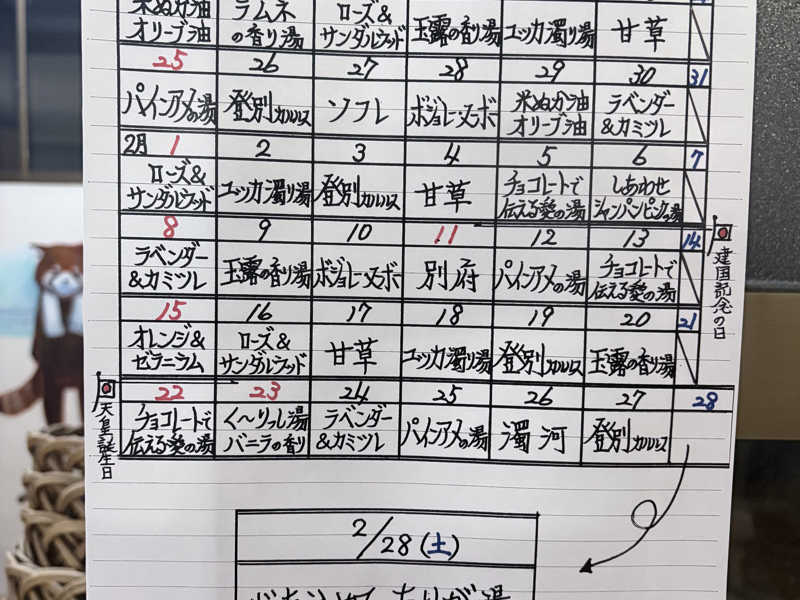 米ぬか油 ラムネ ローズ&
オリーブ油 の香り湯 サンダルウッド 玉露の香り湯 ユッカ濁り湯 甘草
25 26 27 28 29 30 31
パインアメの湯 登別カルルス ソフレ ボジョレーヌーボー 米ぬか油 ラベンダー
オリーブ油 &カミツレ
2月 1 2 3 4 5 6 7
ローズ& チョコレートで しあわせ
サンダルウッド ユッカ濁り湯 登別カルルス 甘草 伝える愛の湯 シャンパンピンクの湯
8 9 10 11 12 13 14
建国記念の日
ラベンダー チョコレートで
&カミツレ 玉露の香り湯 ボジョレーヌーボー 別府 パインアメの湯 伝える愛の湯
15 16 17 18 19 20 21
オレンジ& ローズ&
ゼラニウム サンダルウッド 甘草 ユッカ濁り湯 登別カルルス 玉露の香り湯
22 23 24 25 26 27 28
天皇誕生日
チョコレートで く〜りっし湯 ラベンダー
伝える愛の湯 バニラの香り &カミツレ パインアメの湯 濁河 登別カルルス
2/28(土)